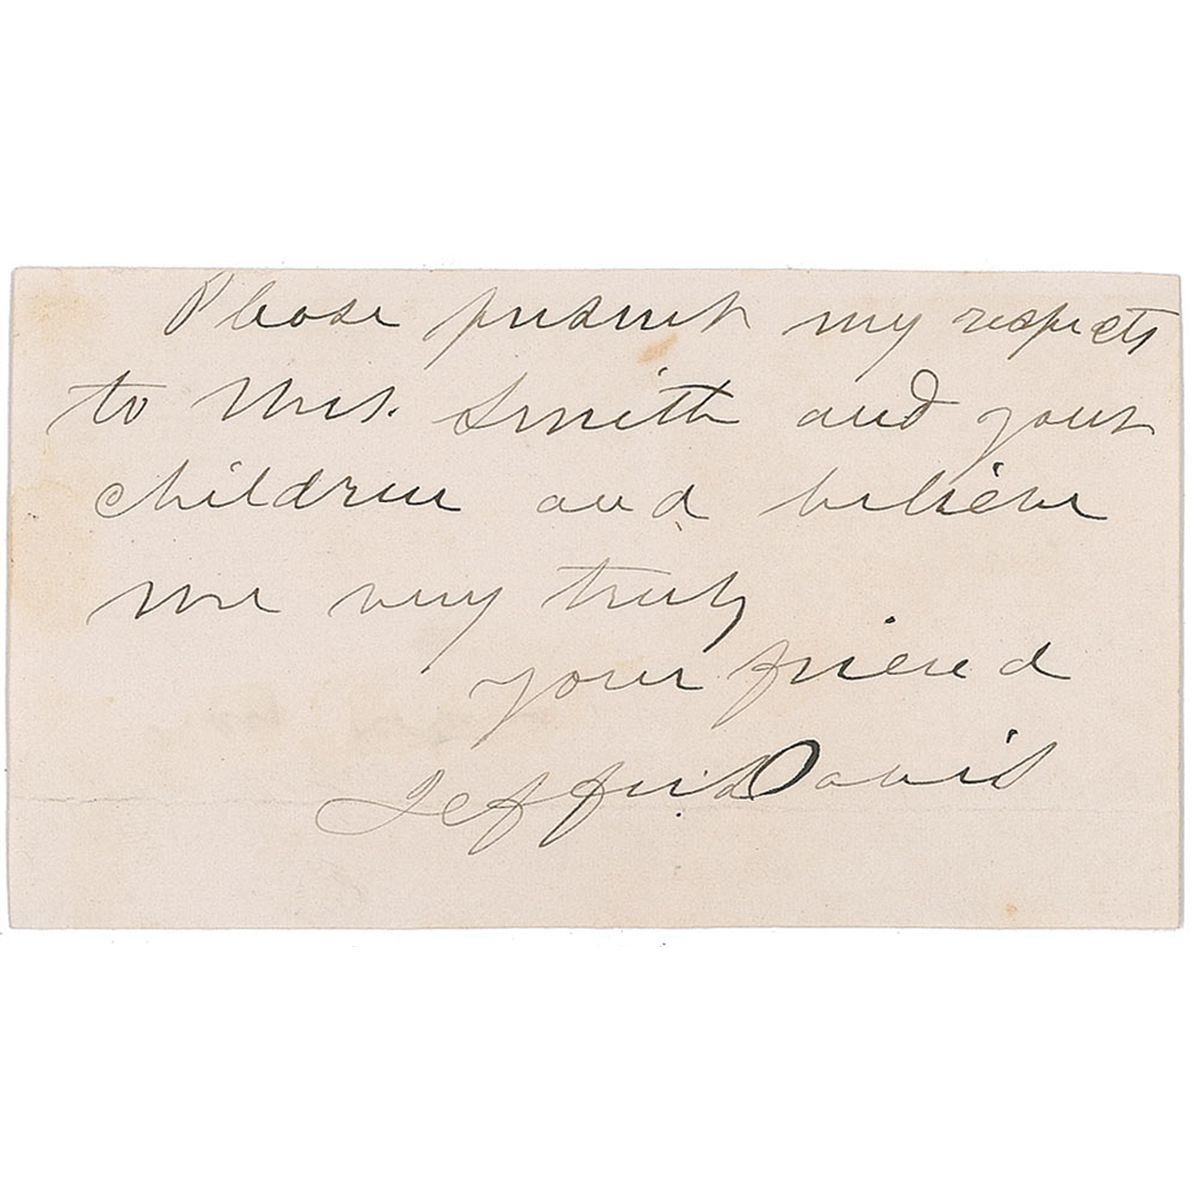 Please present my respects
to Mrs. Smith and your
children and believe
me very truly
your friend
Jeffer: Davis